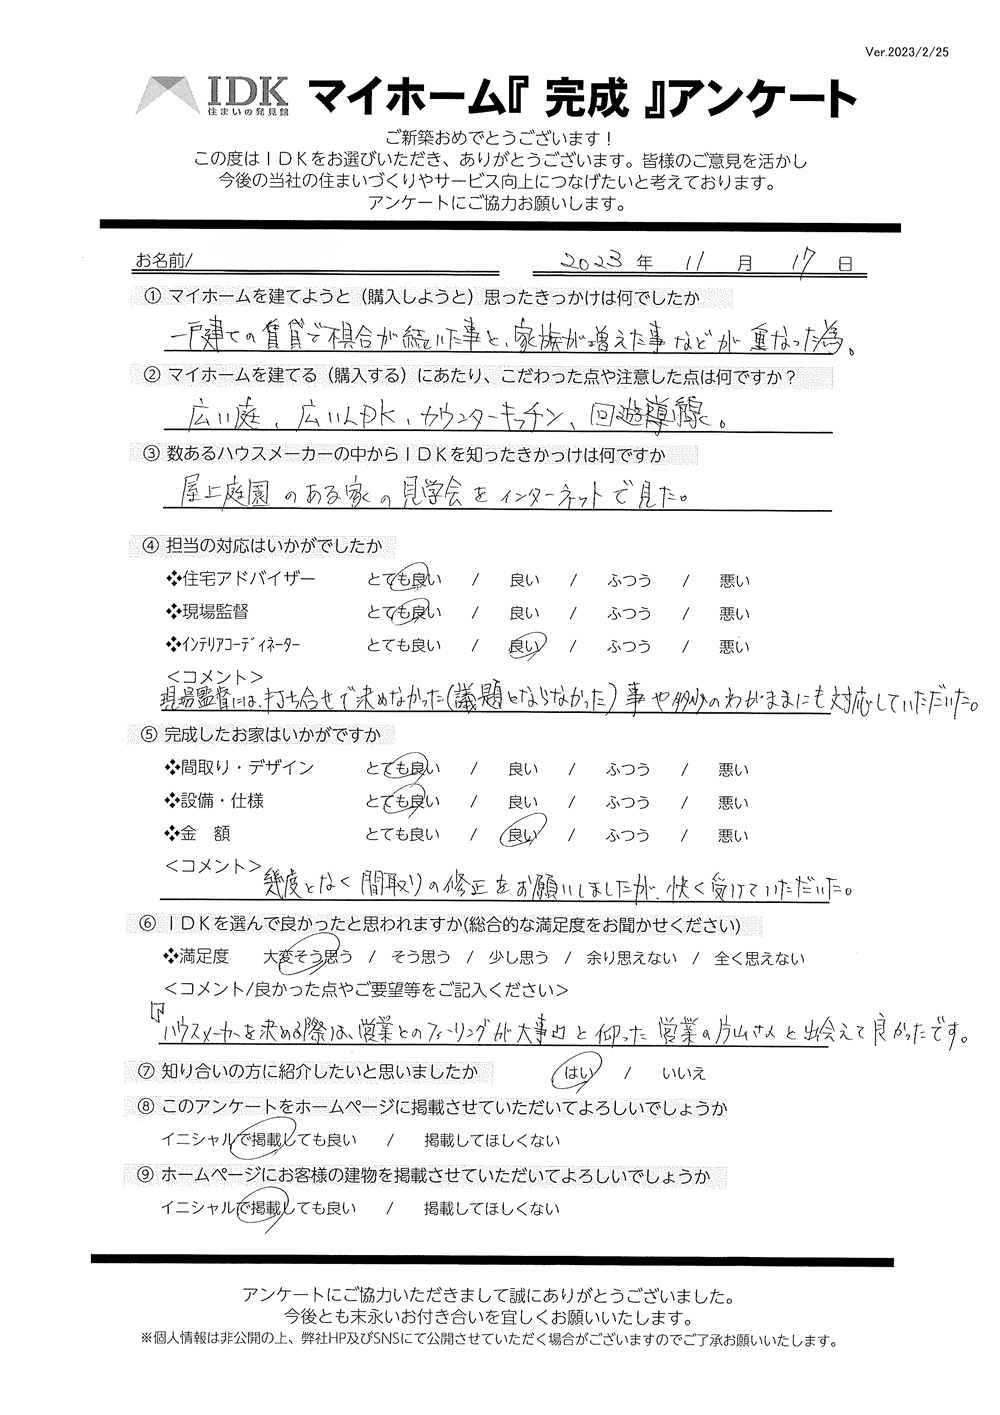 Ver.2023/2/25
IDK 住まいの発見館 マイホーム『 完成 』アンケート
ご新築おめでとうございます！
この度はＩＤＫをお選びいただき、ありがとうございます。皆様のご意見を活かし
今後の当社の住まいづくりやサービス向上につなげたいと考えております。
アンケートにご協力お願いします。
お名前/ 2023 年 11 月 17 日
① マイホームを建てようと（購入しようと）思ったきっかけは何でしたか
一戸建ての賃貸で不具合が続いた事と、家族が増えた事などが重なった為。
② マイホームを建てる（購入する）にあたり、こだわった点や注意した点は何ですか？
広い庭、広いLDK、カウンターキッチン、回遊導線。
③ 数あるハウスメーカーの中からＩＤＫを知ったきかっけは何ですか
屋上庭園のある家の見学会をインターネットで見た。
④ 担当の対応はいかがでしたか
❖住宅アドバイザー とても良い / 良い / ふつう / 悪い
❖現場監督 とても良い / 良い / ふつう / 悪い
❖ｲﾝﾃﾘｱｺｰﾃﾞｨﾈｰﾀｰ とても良い / 良い / ふつう / 悪い
＜コメント＞
現場監督には、打ち合せで決めなかった(議題とならなかった)事や多少のわがままにも対応していただいた。
⑤ 完成したお家はいかがですか
❖間取り・デザイン とても良い / 良い / ふつう / 悪い
❖設備・仕様 とても良い / 良い / ふつう / 悪い
❖金　額 とても良い / 良い / ふつう / 悪い
＜コメント＞
幾度となく間取りの修正をお願いしましたが、快く受けていただいた。
⑥ ＩＤＫを選んで良かったと思われますか(総合的な満足度をお聞かせください)
❖満足度 大変そう思う / そう思う / 少し思う / 余り思えない / 全く思えない
＜コメント/良かった点やご要望等をご記入ください＞
『ハウスメーカーを決める際は、営業とのフィーリングが大事』と仰った営業の片山さんと出会えて良かったです。
⑦ 知り合いの方に紹介したいと思いましたか はい / いいえ
⑧ このアンケートをホームページに掲載させていただいてよろしいでしょうか
イニシャルで掲載しても良い / 掲載してほしくない
⑨ ホームページにお客様の建物を掲載させていただいてよろしいでしょうか
イニシャルで掲載しても良い / 掲載してほしくない
アンケートにご協力いただきまして誠にありがとうございました。
今後とも末永いお付き合いを宜しくお願いいたします。
※個人情報は非公開の上、弊社HP及びSNSにて公開させていただく場合がございますのでご了承お願いいたします。